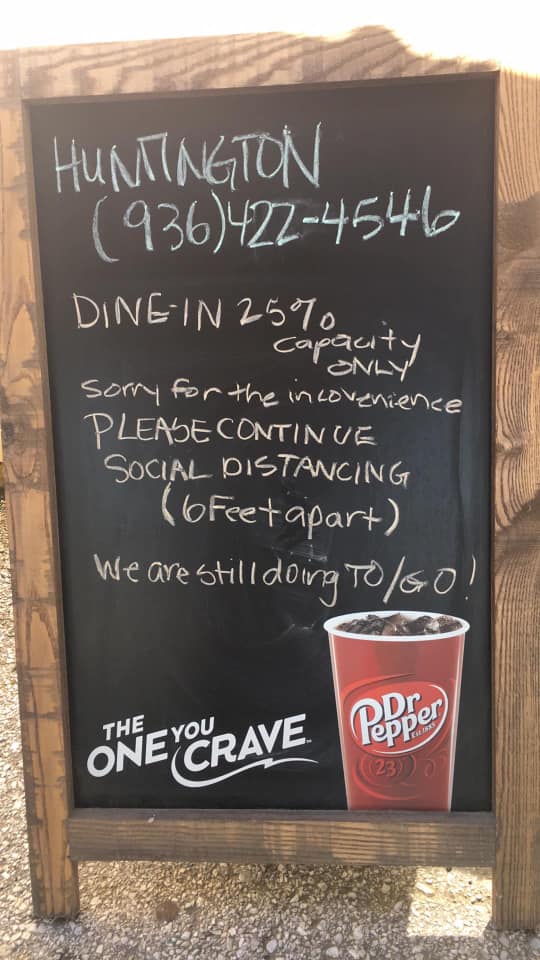 HUNTINGTON
(936)422-4546
DINE-IN 25%
capacity
ONLY
Sorry for the incovenience
PLEASE CONTINUE
SOCIAL DISTANCING
(6 Feet apart)
We are still doing TO/GO!
THE
ONE YOU
CRAVE
Dr
Pepper
EST 1885
23